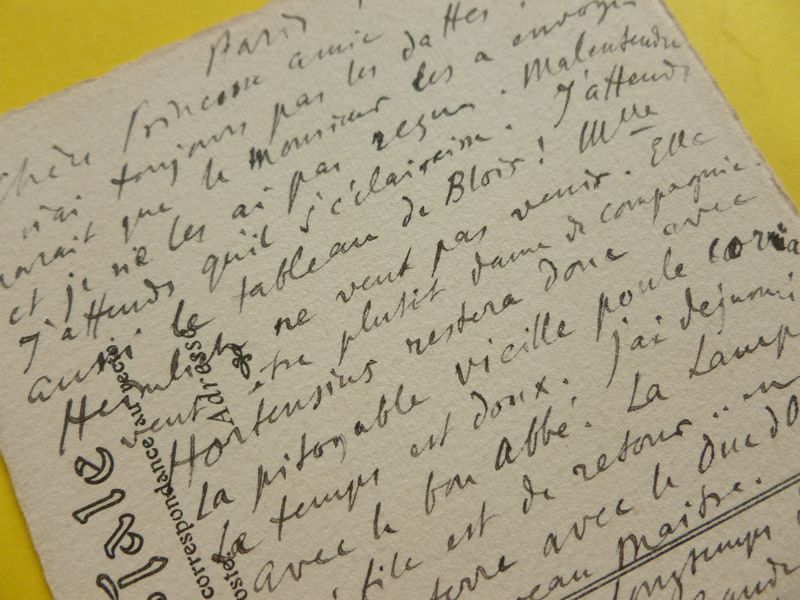 Paris
Chère Princesse amie
n'ai toujours pas les dattes !
parait que le monsieur les a envoyé
et je ne les ai pas reçues. Malentendu
J'attends qu'il s'éclaircisse. J'attends
aussi le tableau de Blois ! Mlle
ne veut pas venir. Elle
veut être plutôt dame de compagnie.
Hortensius restera donc avec
la pitoyable vieille poule
Le temps est doux. J'ai dejeuné
avec le bon Abbé. La Lamp
file est de retour .. un
terre avec le Duc d'O
eau Maitre.
longtemps
correspondance au recto
Adresse